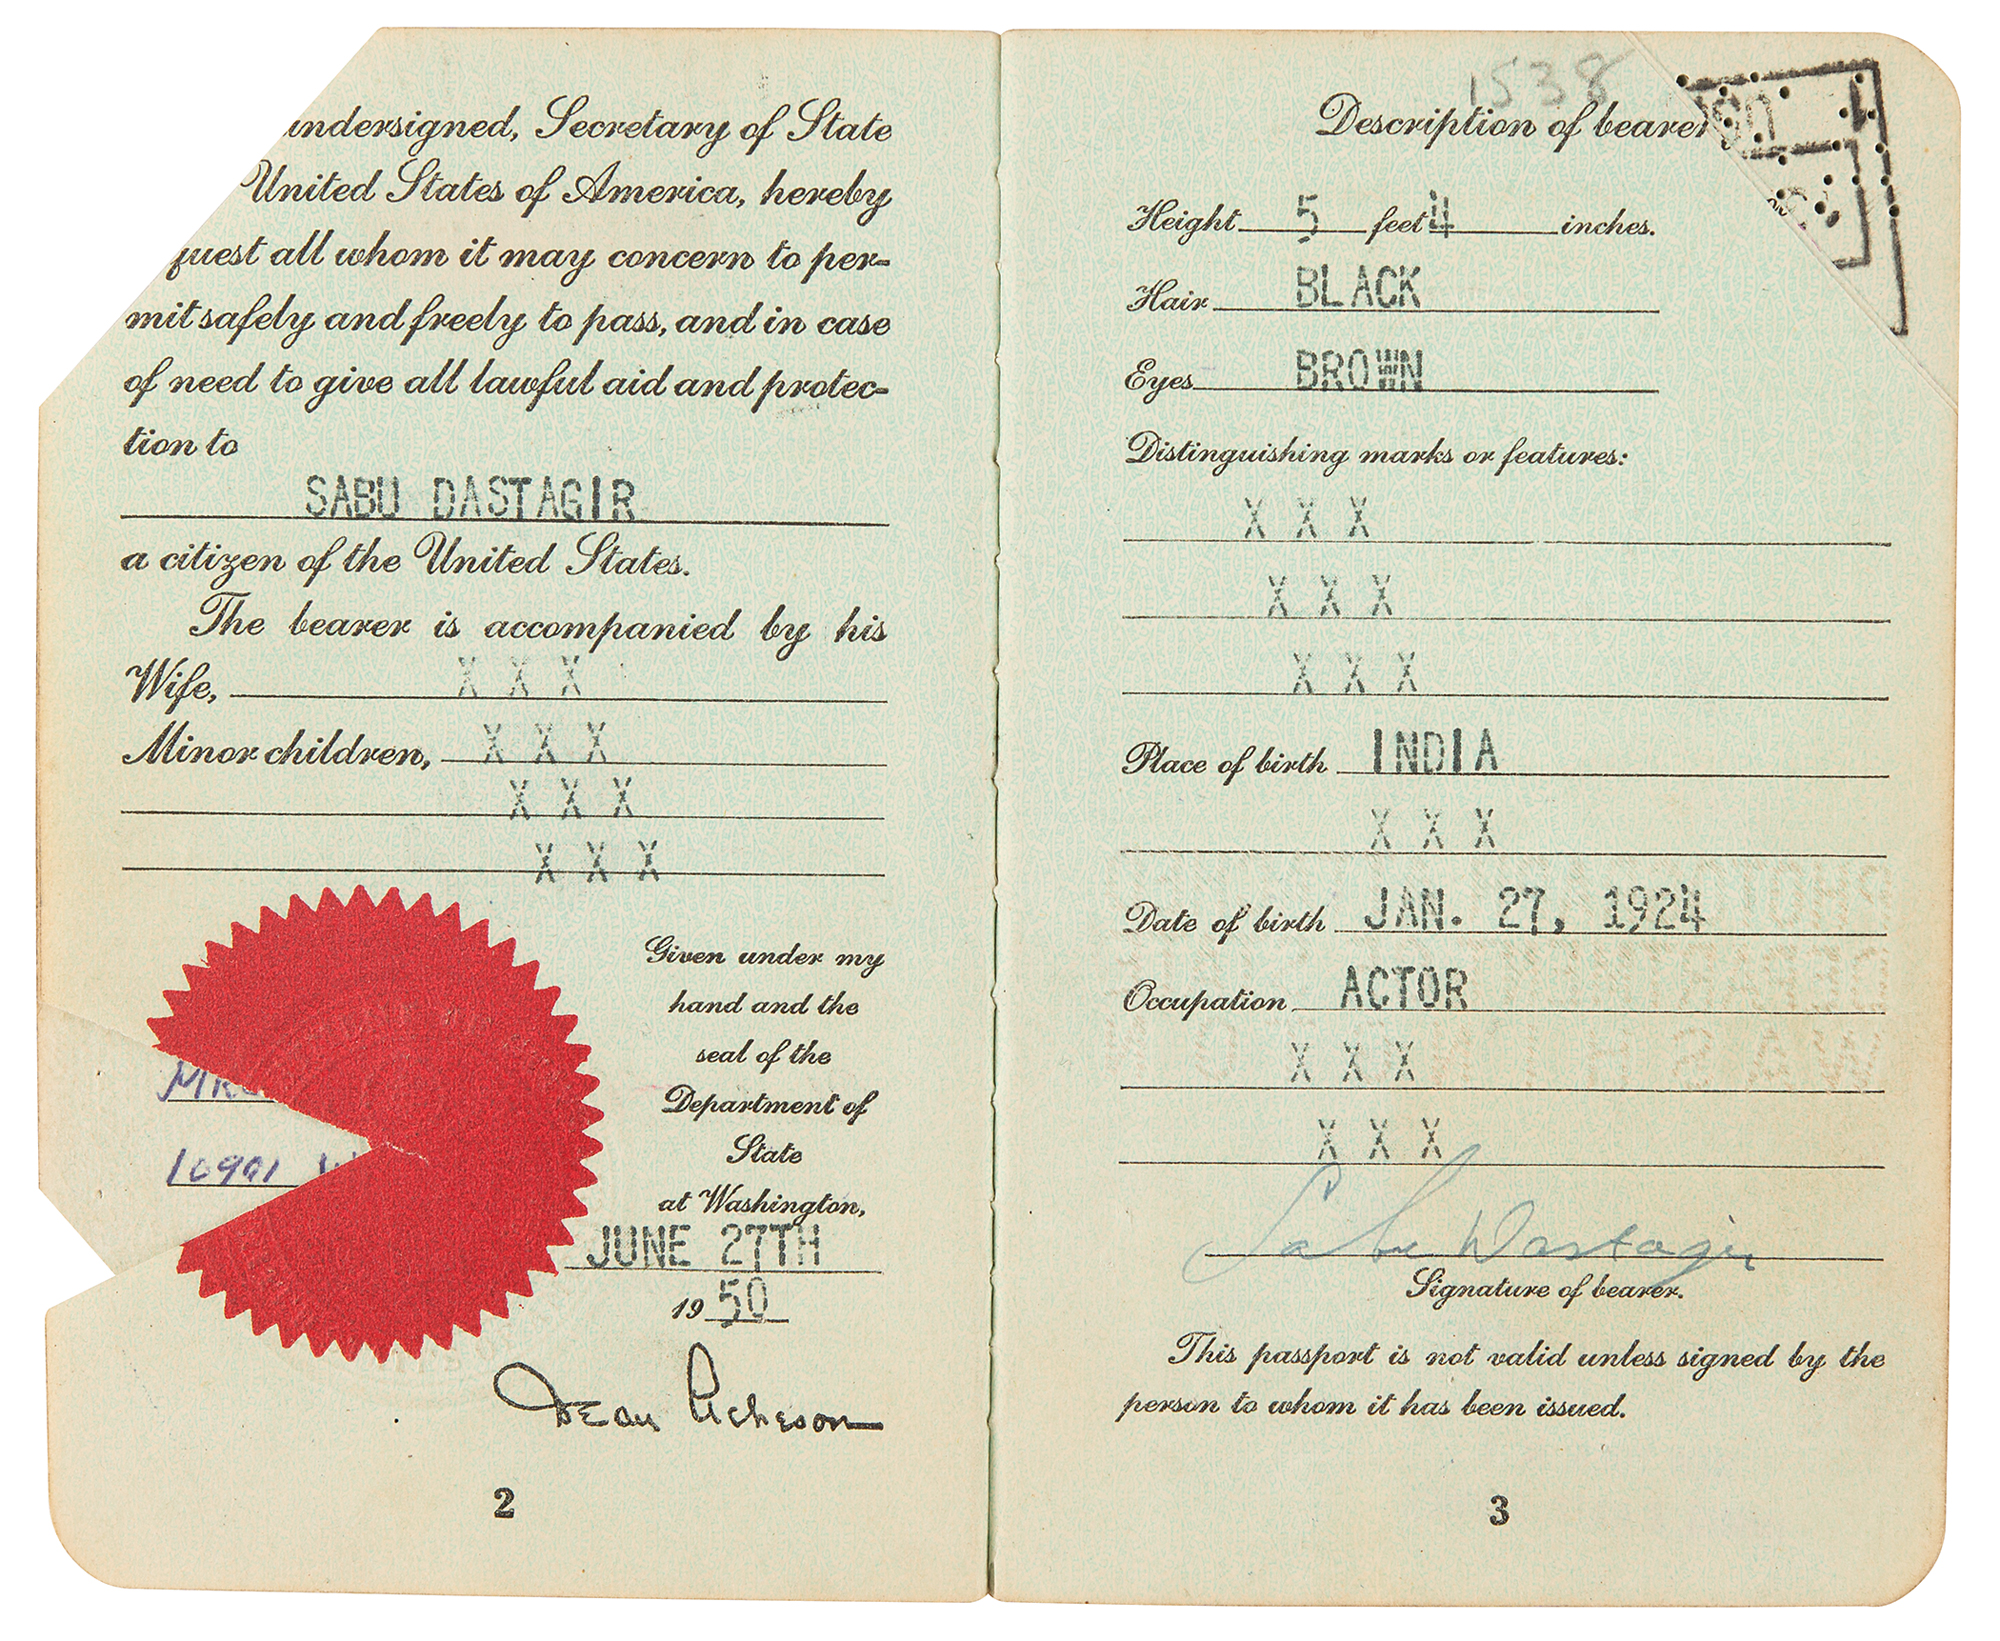 undersigned, Secretary of State
United States of America, hereby
quest all whom it may concern to per-
mit safely and freely to pass, and in case
of need to give all lawful aid and protec-
tion to
SABU DASTAGIR
a citizen of the United States.
The bearer is accompanied by his
Wife, X X X
Minor children, X X X
X X X
X X X
Given under my
hand and the
seal of the
Department of
State
at Washington,
JUNE 27TH
1950
10901
Dean Acheson
2
1538
Description of bearer
Height 5 feet 4 inches.
Hair BLACK
Eyes BROWN
Distinguishing marks or features:
X X X
X X X
X X X
Place of birth INDIA
X X X
Date of birth JAN. 27, 1924
Occupation ACTOR
X X X
X X X
Sabu Dastagir
Signature of bearer.
This passport is not valid unless signed by the
person to whom it has been issued.
3